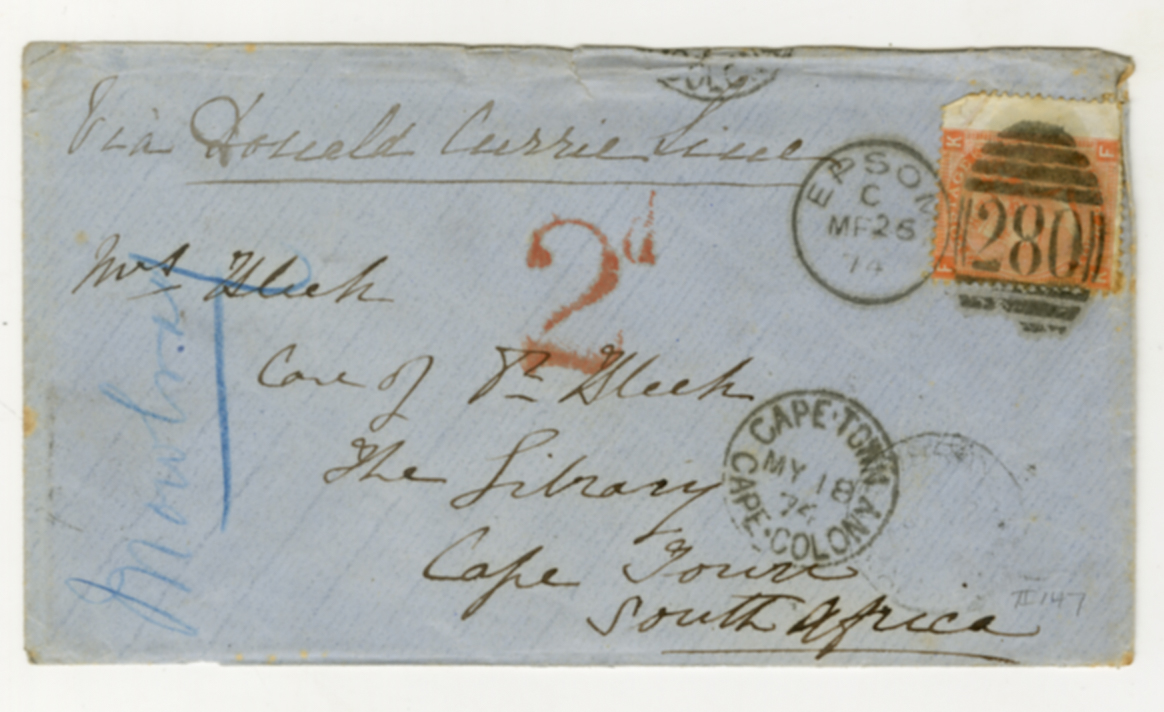 Via Donald Currie Line
EPSOM
C
MR 26
74
K F
280
F
2d
Mrs Bleek
Care of Dr Bleek
The Library
CAPE·TOWN
MY 18
74
CAPE·COLONY
Cape Town
South Africa
Mowbray
II 147